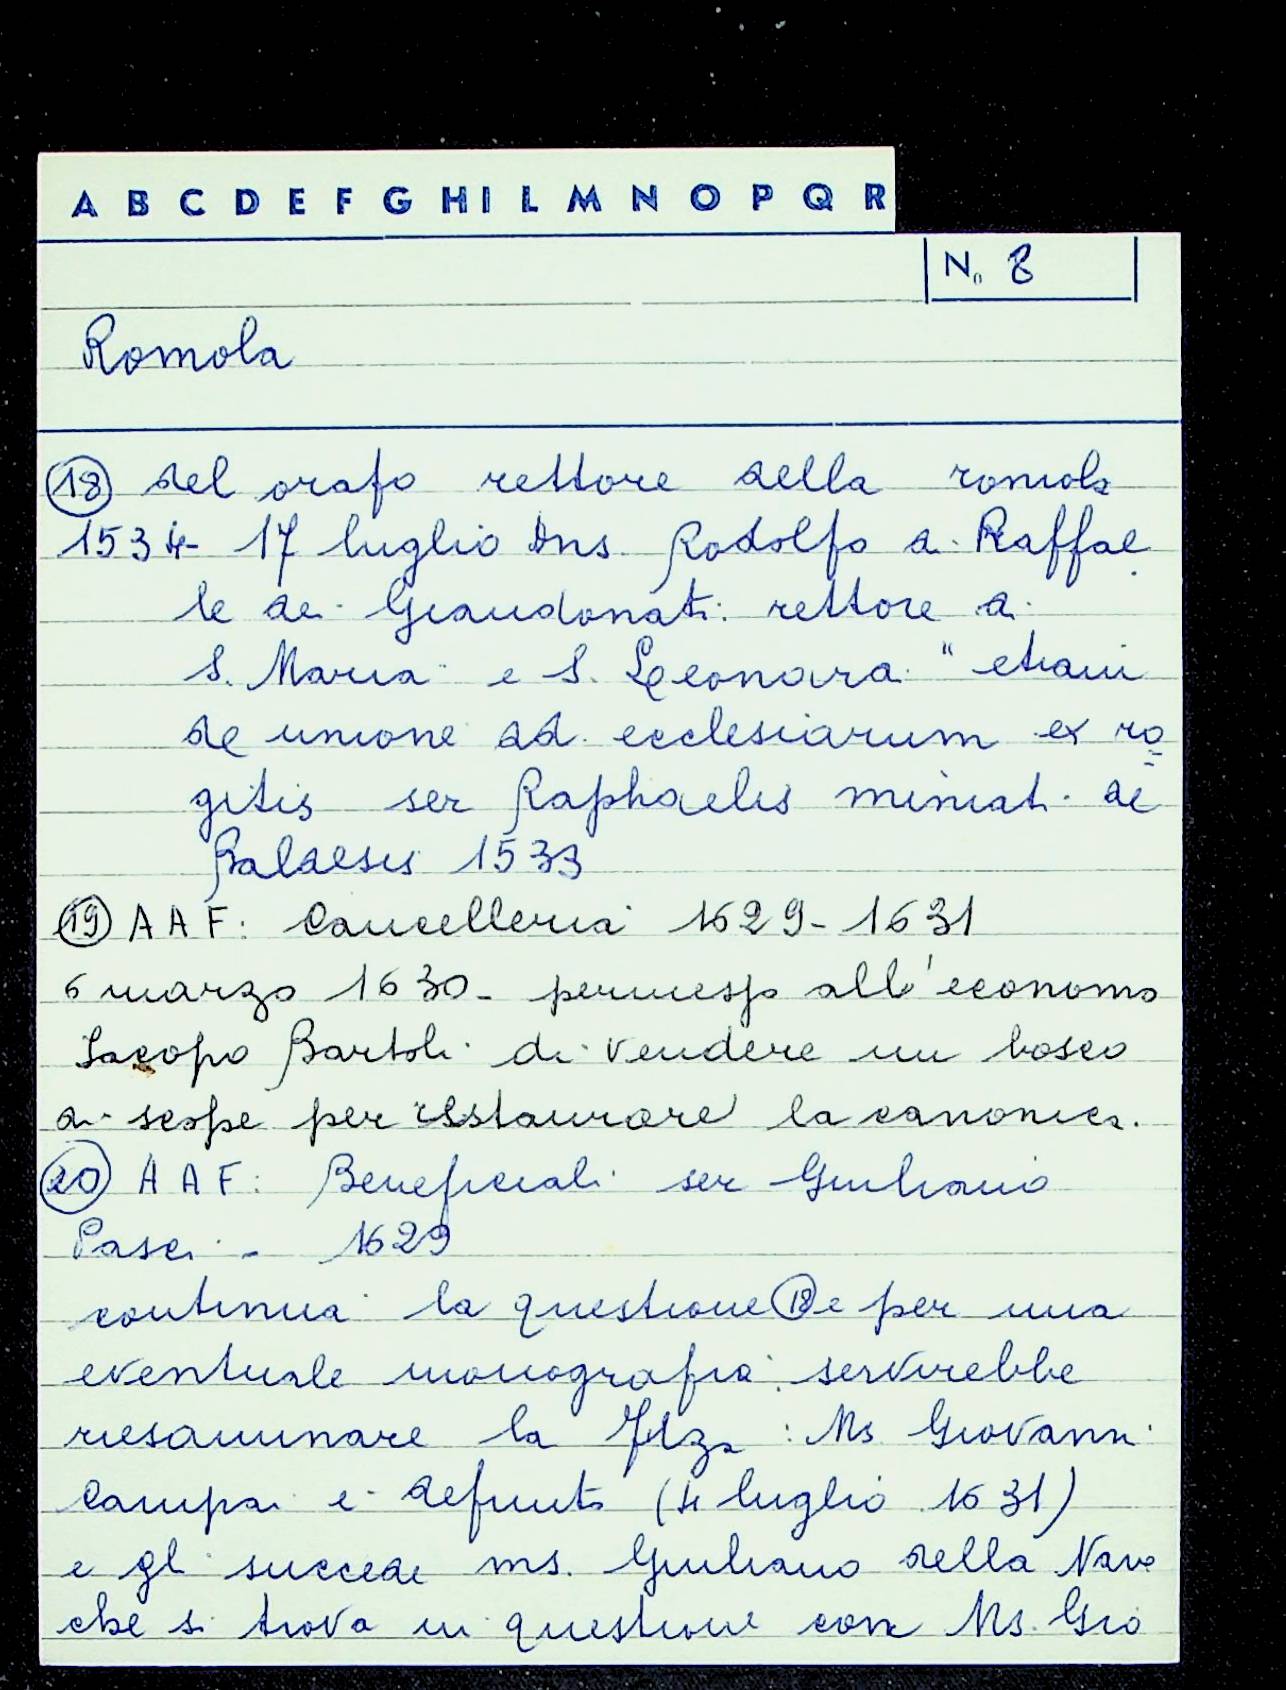 A B C D E F G H I L M N O P Q R
N. 8
Romola
18 del orafo rettore della romola
1534- 17 luglio Dns. Rodolfo di Raffae
le dei Giandonati rettore di
S. Maria e S. Leonora "etiam
de unione dd. ecclesiarum ex ro
gitis ser Raphaelis miniati de
Baldesis 1533
19 A A F: Cancelleria 1629-1631
6 marzo 1630- permesso all'economo
Iacopo Bartoli di vendere un bosco
di scope per restaurare la canonica.
20 A A F: Beneficiali ser Giuliano
Pasci - 1629
continua la questione 18 e per una
eventuale monografia servirebbe
riesaminare la filza: Ms Giovanni
Campai e defunto (4 luglio 1631)
e gli succede ms. Giuliano della Nave
che si trova in questione con Ms. Gio